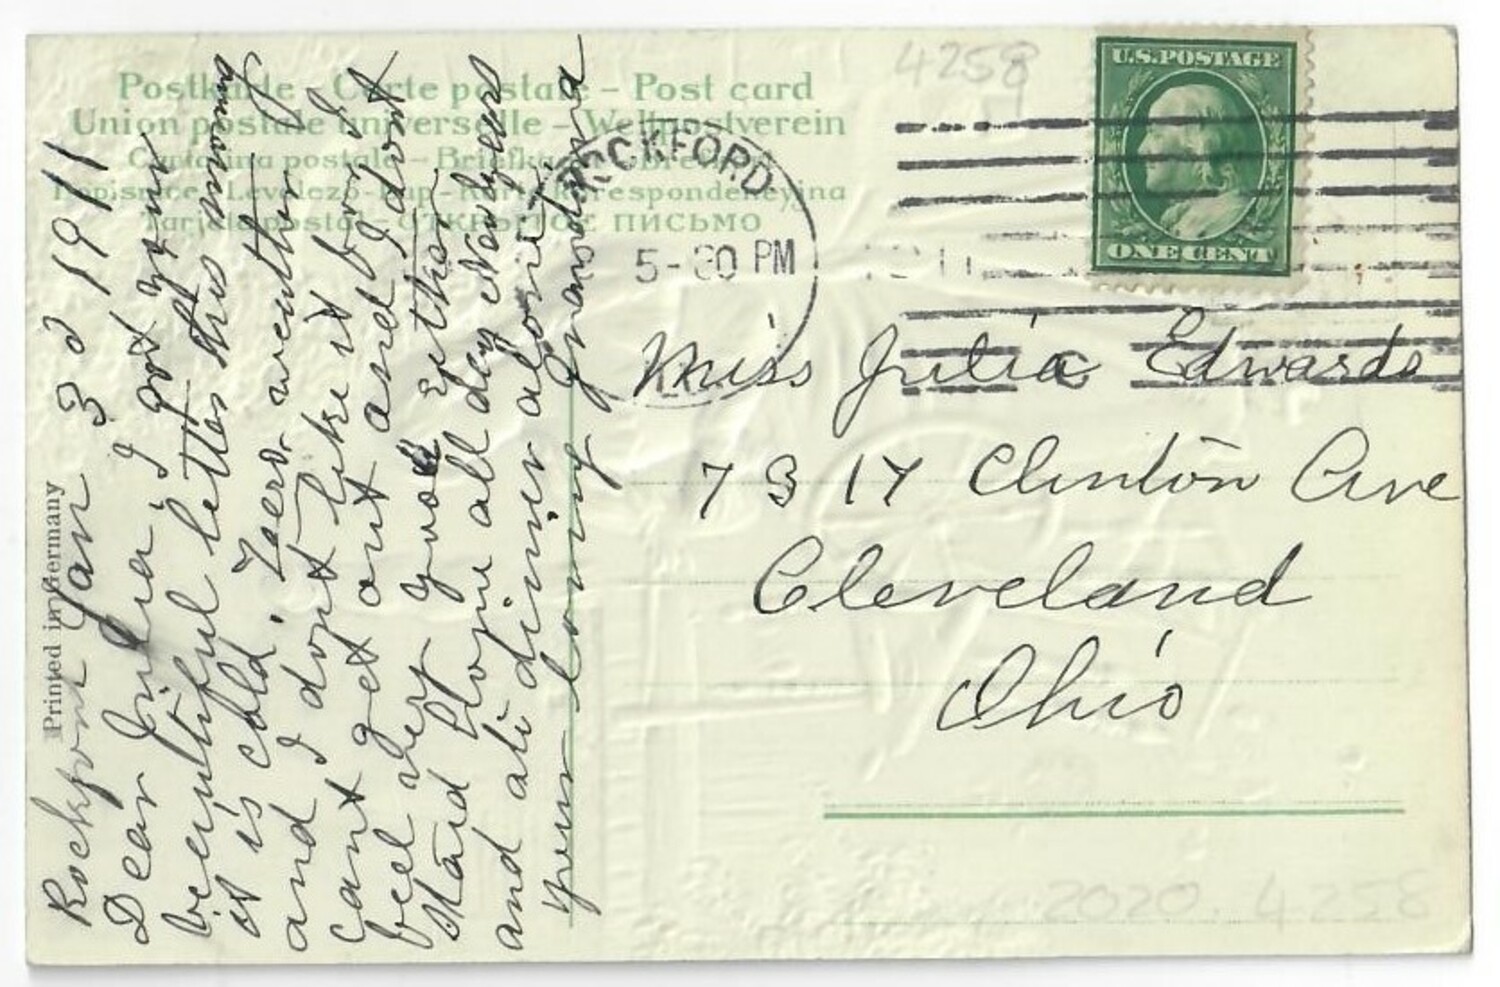 Postkarte - Carte postale - Post card
Union postale universelle - Weltpostverein
Cartolina postale - Briefkaart -
Dopisnice - Levelező-Lap - Karta korespondencyjna
Tarjeta postal - ОТКРЫТОЕ ПИСЬМО
Printed in Germany
4258
U.S. POSTAGE
ONE CENT
ROCKFORD
5-30 PM
Rockford Jan 3 d 1911
Dear Julia, I got your
beautiful letter this morning
it is cold. Zeero weather
and I dont like it for I
cant get out and I dont
feel very good either
Maid gone all day Newyears
and ate dinner alone
your loving grandma
Miss Julia Edwards
7317 Clinton Ave
Cleveland
Ohio
2020.4258